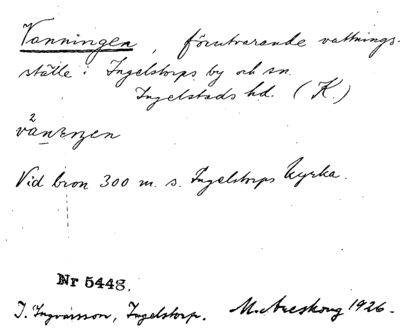 Vanningen, förutvarande vattnings-
ställe i Ingelstorps by och sn.
Ingelstads hd. (K.)
Vid bron 300 m. s. Ingelstorps kyrka.
Nr 5448.
I. Ingvarsson, Ingelstorp. M. Areskoug 1926.